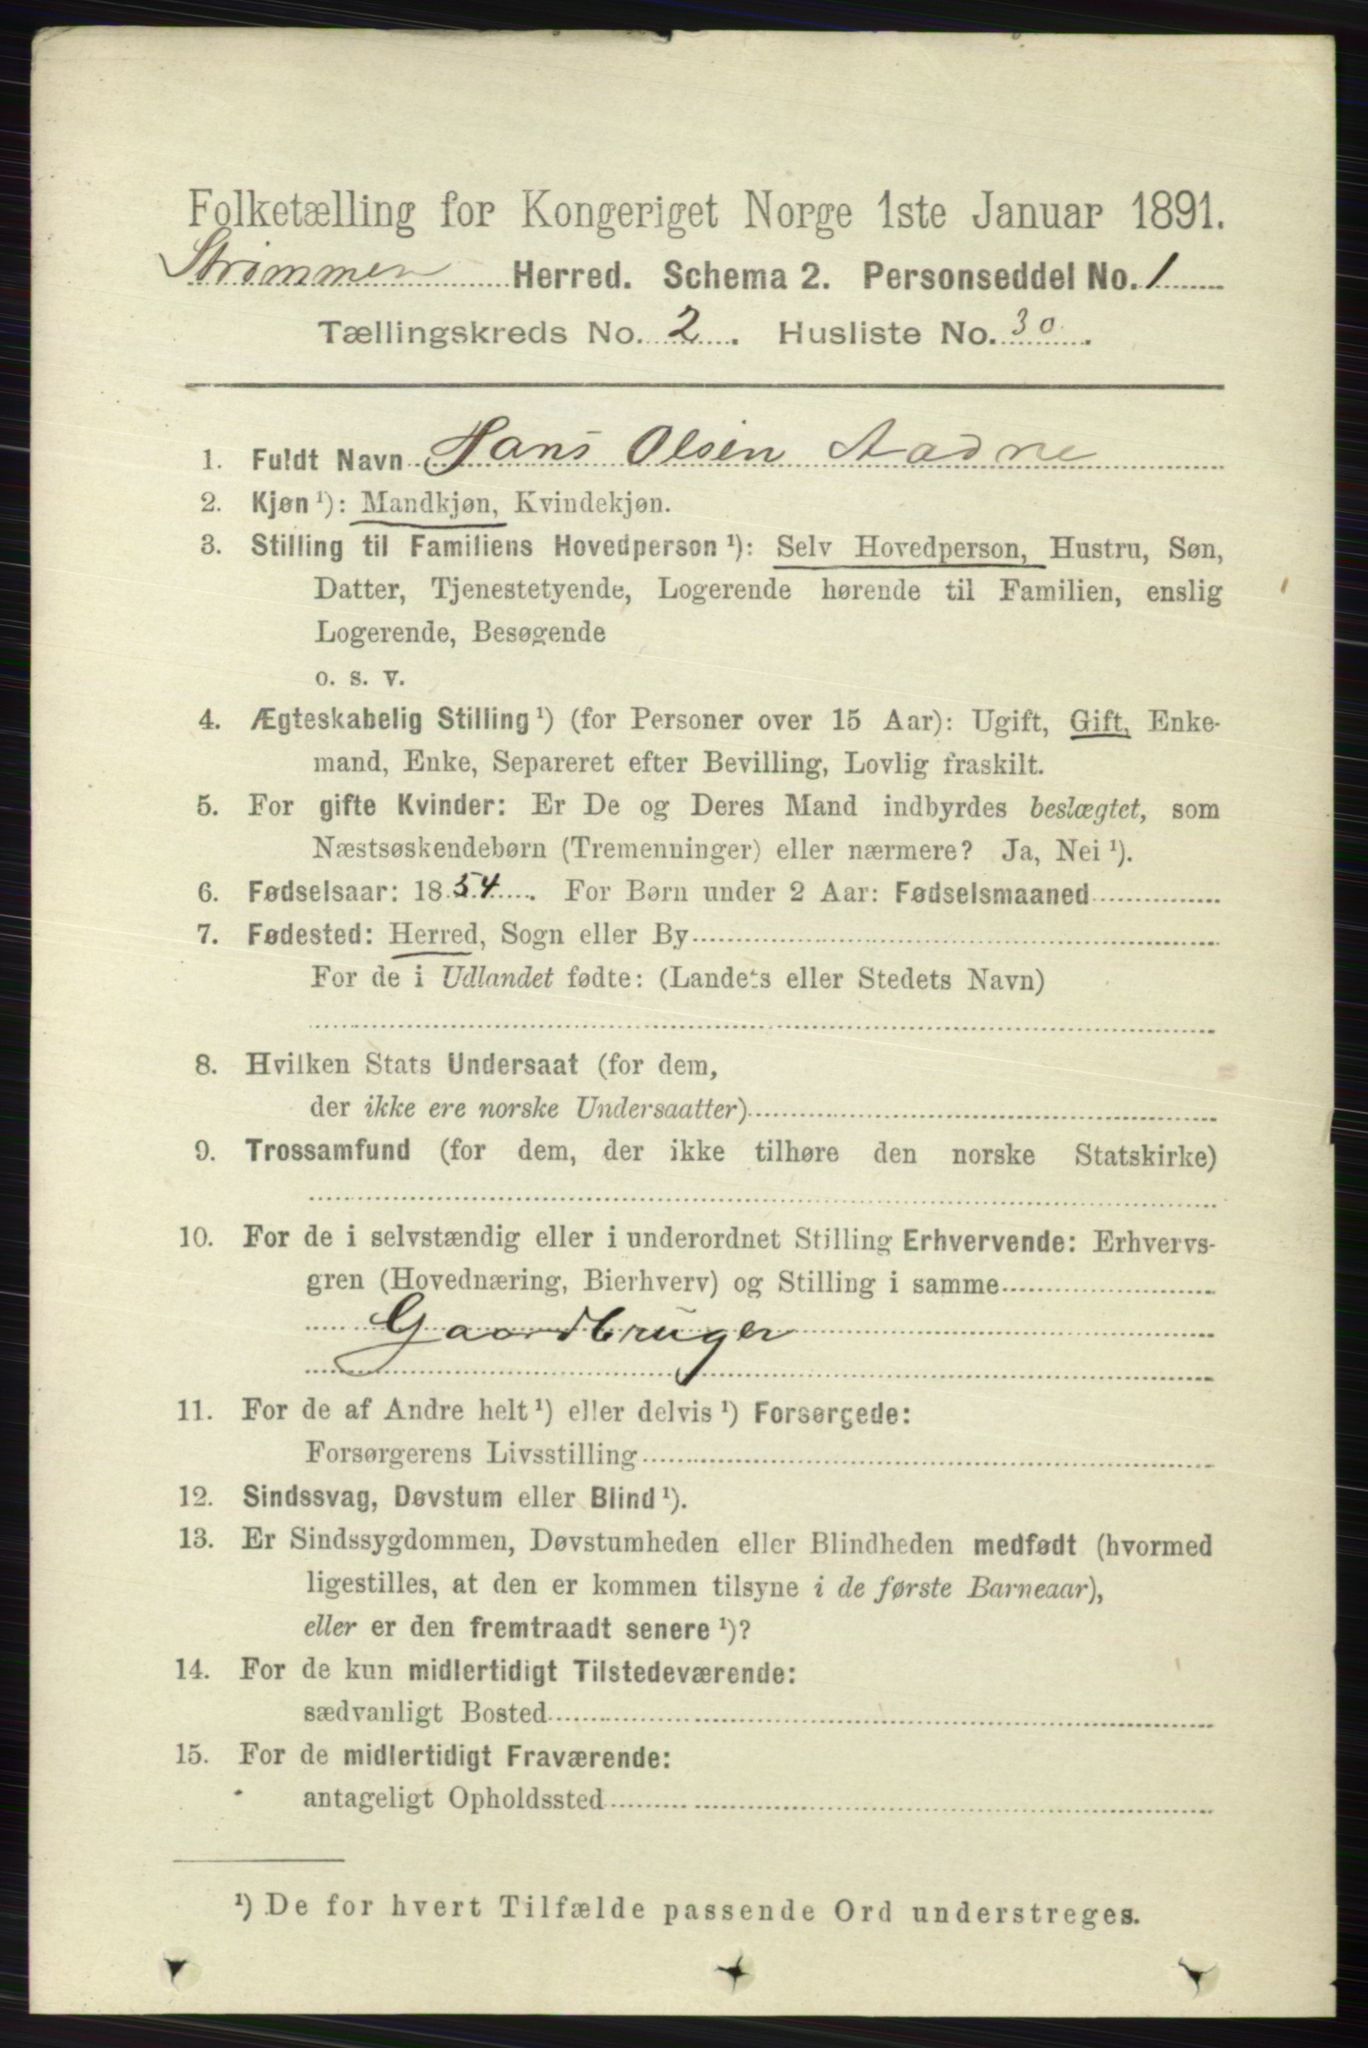 Folketælling for Kongeriget Norge 1ste Januar 1891.
Strømmen Herred. Schema 2. Personseddel No. 1
Tællingskreds No. 2. Husliste No. 30.
1. Fuldt Navn Hans Olsen Aadne
2. Kjøn¹): Mandkjøn, Kvindekjøn.
3. Stilling til Familiens Hovedperson¹): Selv Hovedperson, Hustru, Søn,
Datter, Tjenestetyende, Logerende hørende til Familien, enslig
Logerende, Besøgende
o. s. v.
4. Ægteskabelig Stilling¹) (for Personer over 15 Aar): Ugift, Gift, Enke-
mand, Enke, Separeret efter Bevilling, Lovlig fraskilt.
5. For gifte Kvinder: Er De og Deres Mand indbyrdes beslægtet, som
Næstsøskendebørn (Tremenninger) eller nærmere? Ja, Nei¹).
6. Fødselsaar: 1854. For Børn under 2 Aar: Fødselsmaaned
7. Fødested: Herred, Sogn eller By
For de i Udlandet fødte: (Landets eller Stedets Navn)
8. Hvilken Stats Undersaat (for dem,
der ikke ere norske Undersaatter)
9. Trossamfund (for dem, der ikke tilhøre den norske Statskirke)
10. For de i selvstændig eller i underordnet Stilling Erhvervende: Erhvervs-
gren (Hovednæring, Bierhverv) og Stilling i samme
Gaardbruger
11. For de af Andre helt¹) eller delvis¹) Forsørgede:
Forsørgerens Livsstilling
12. Sindssvag, Døvstum eller Blind¹).
13. Er Sindssygdommen, Døvstumheden eller Blindheden medfødt (hvormed
ligestilles, at den er kommen tilsyne i de første Barneaar),
eller er den fremtraadt senere¹)?
14. For de kun midlertidigt Tilstedeværende:
sædvanligt Bosted
15. For de midlertidigt Fraværende:
antageligt Opholdssted
¹) De for hvert Tilfælde passende Ord understreges.